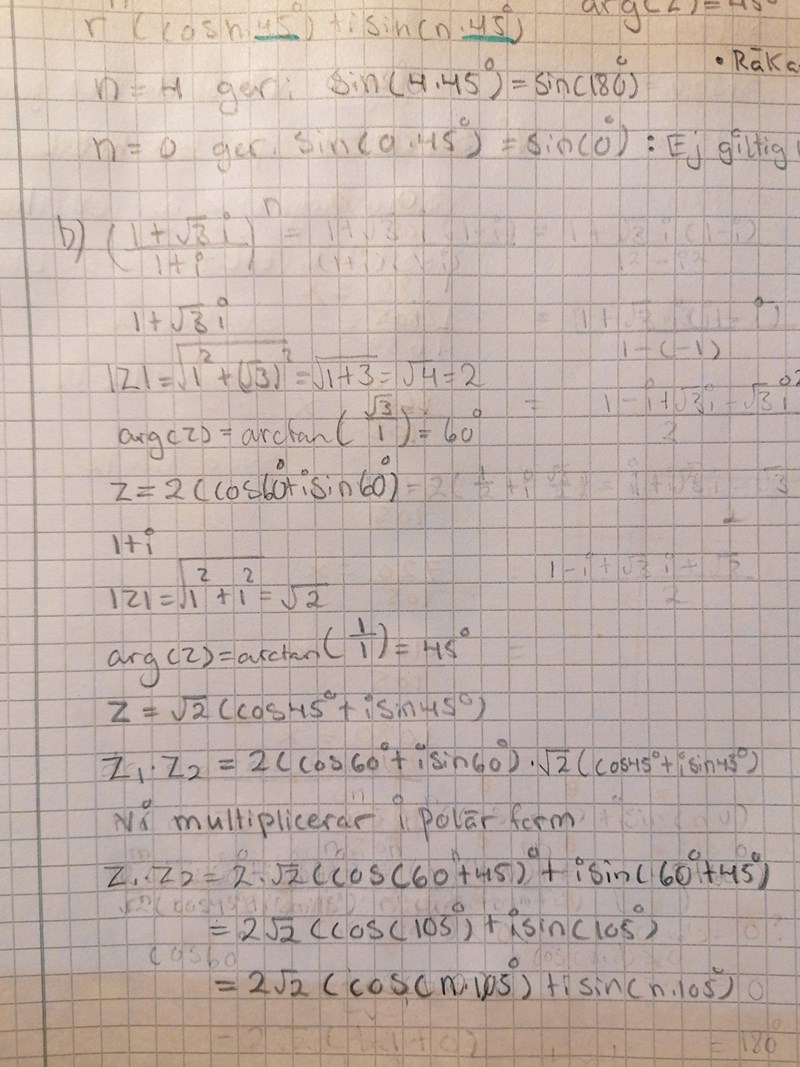 arg(z)=45°
r (cos n·45°) + i sin(n·45°)
• Räka
n = 4 ger: sin(4·45°) = sin(180°)
n = 0 ger. sin(0·45°) = sin(0°) : Ej giltig
b) ((1+√3 i)/(1+i))^n
1+√3 i
1-(-1)
|z| = √(1²+(√3)²) = √(1+3) = √4 = 2
= (1-i+√3i-√3i²)/2
arg(z) = arctan(√3/1) = 60°
z = 2(cos60°+i sin60°)
1+i
|z| = √(1²+1²) = √2
arg(z) = arctan(1/1) = 45°
z = √2 (cos45°+i sin45°)
z₁·z₂ = 2(cos60°+i sin60°)·√2(cos45°+i sin45°)
Vi multiplicerar i polär form
z₁·z₂ = 2·√2 (cos(60+45)° + i sin(60°+45°)
= 2√2 (cos(105°) + i sin(105°)
= 2√2 (cos(n·105°) + i sin(n·105°)
= 180